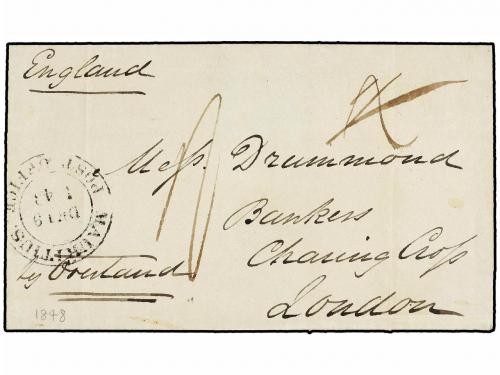 England
Mess. Drummond
Bankers
Charing Cross
London
by Overland
MAURITIUS. POST OFFICE
DE 19
1848